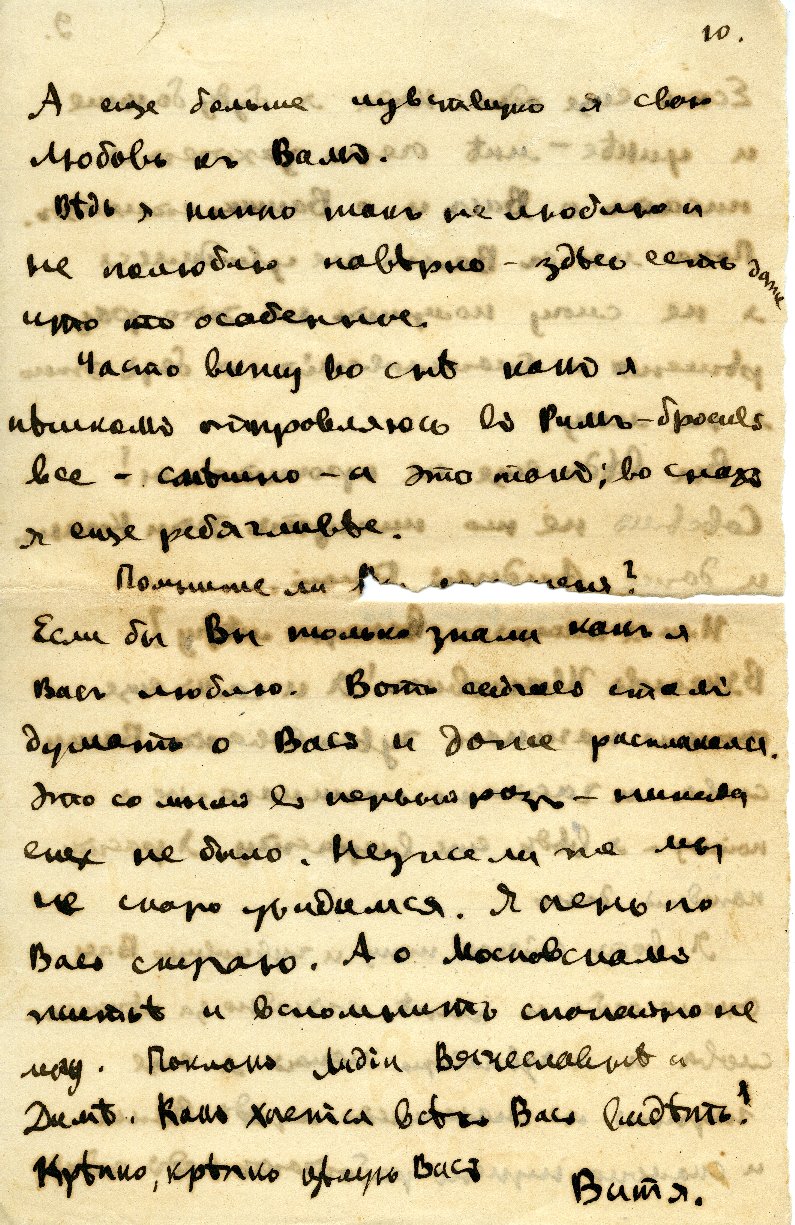 10.
А еще больше чувствую я свою
любовь къ Вамъ.
Вѣдь я никого такъ не люблю и
не полюблю навѣрно – здѣсь есть даже
что то особенное.
Часто вижу во снѣ какъ я
пѣшкомъ отправляюсь въ Римъ – бросивъ
все – смѣшно – а это такъ; во снахъ
я еще ребячливѣе.
Помните ли Вы меня?
Если бы Вы только знали какъ я
Васъ люблю. Вотъ сейчасъ сталъ
думать о Васъ и даже расплакался.
Это со мною въ первый разъ – никогда
еще не было. Неужели же мы
не скоро увидимся. Я очень по
Васъ скучаю. А о Московскомъ
житьѣ и вспомнить спокойно не
могу. Поклонъ Лидіи Вячеславнѣ и
Димѣ. Какъ хочется всѣхъ Васъ видѣть!
Крѣпко, крѣпко цѣлую Васъ
Витя.